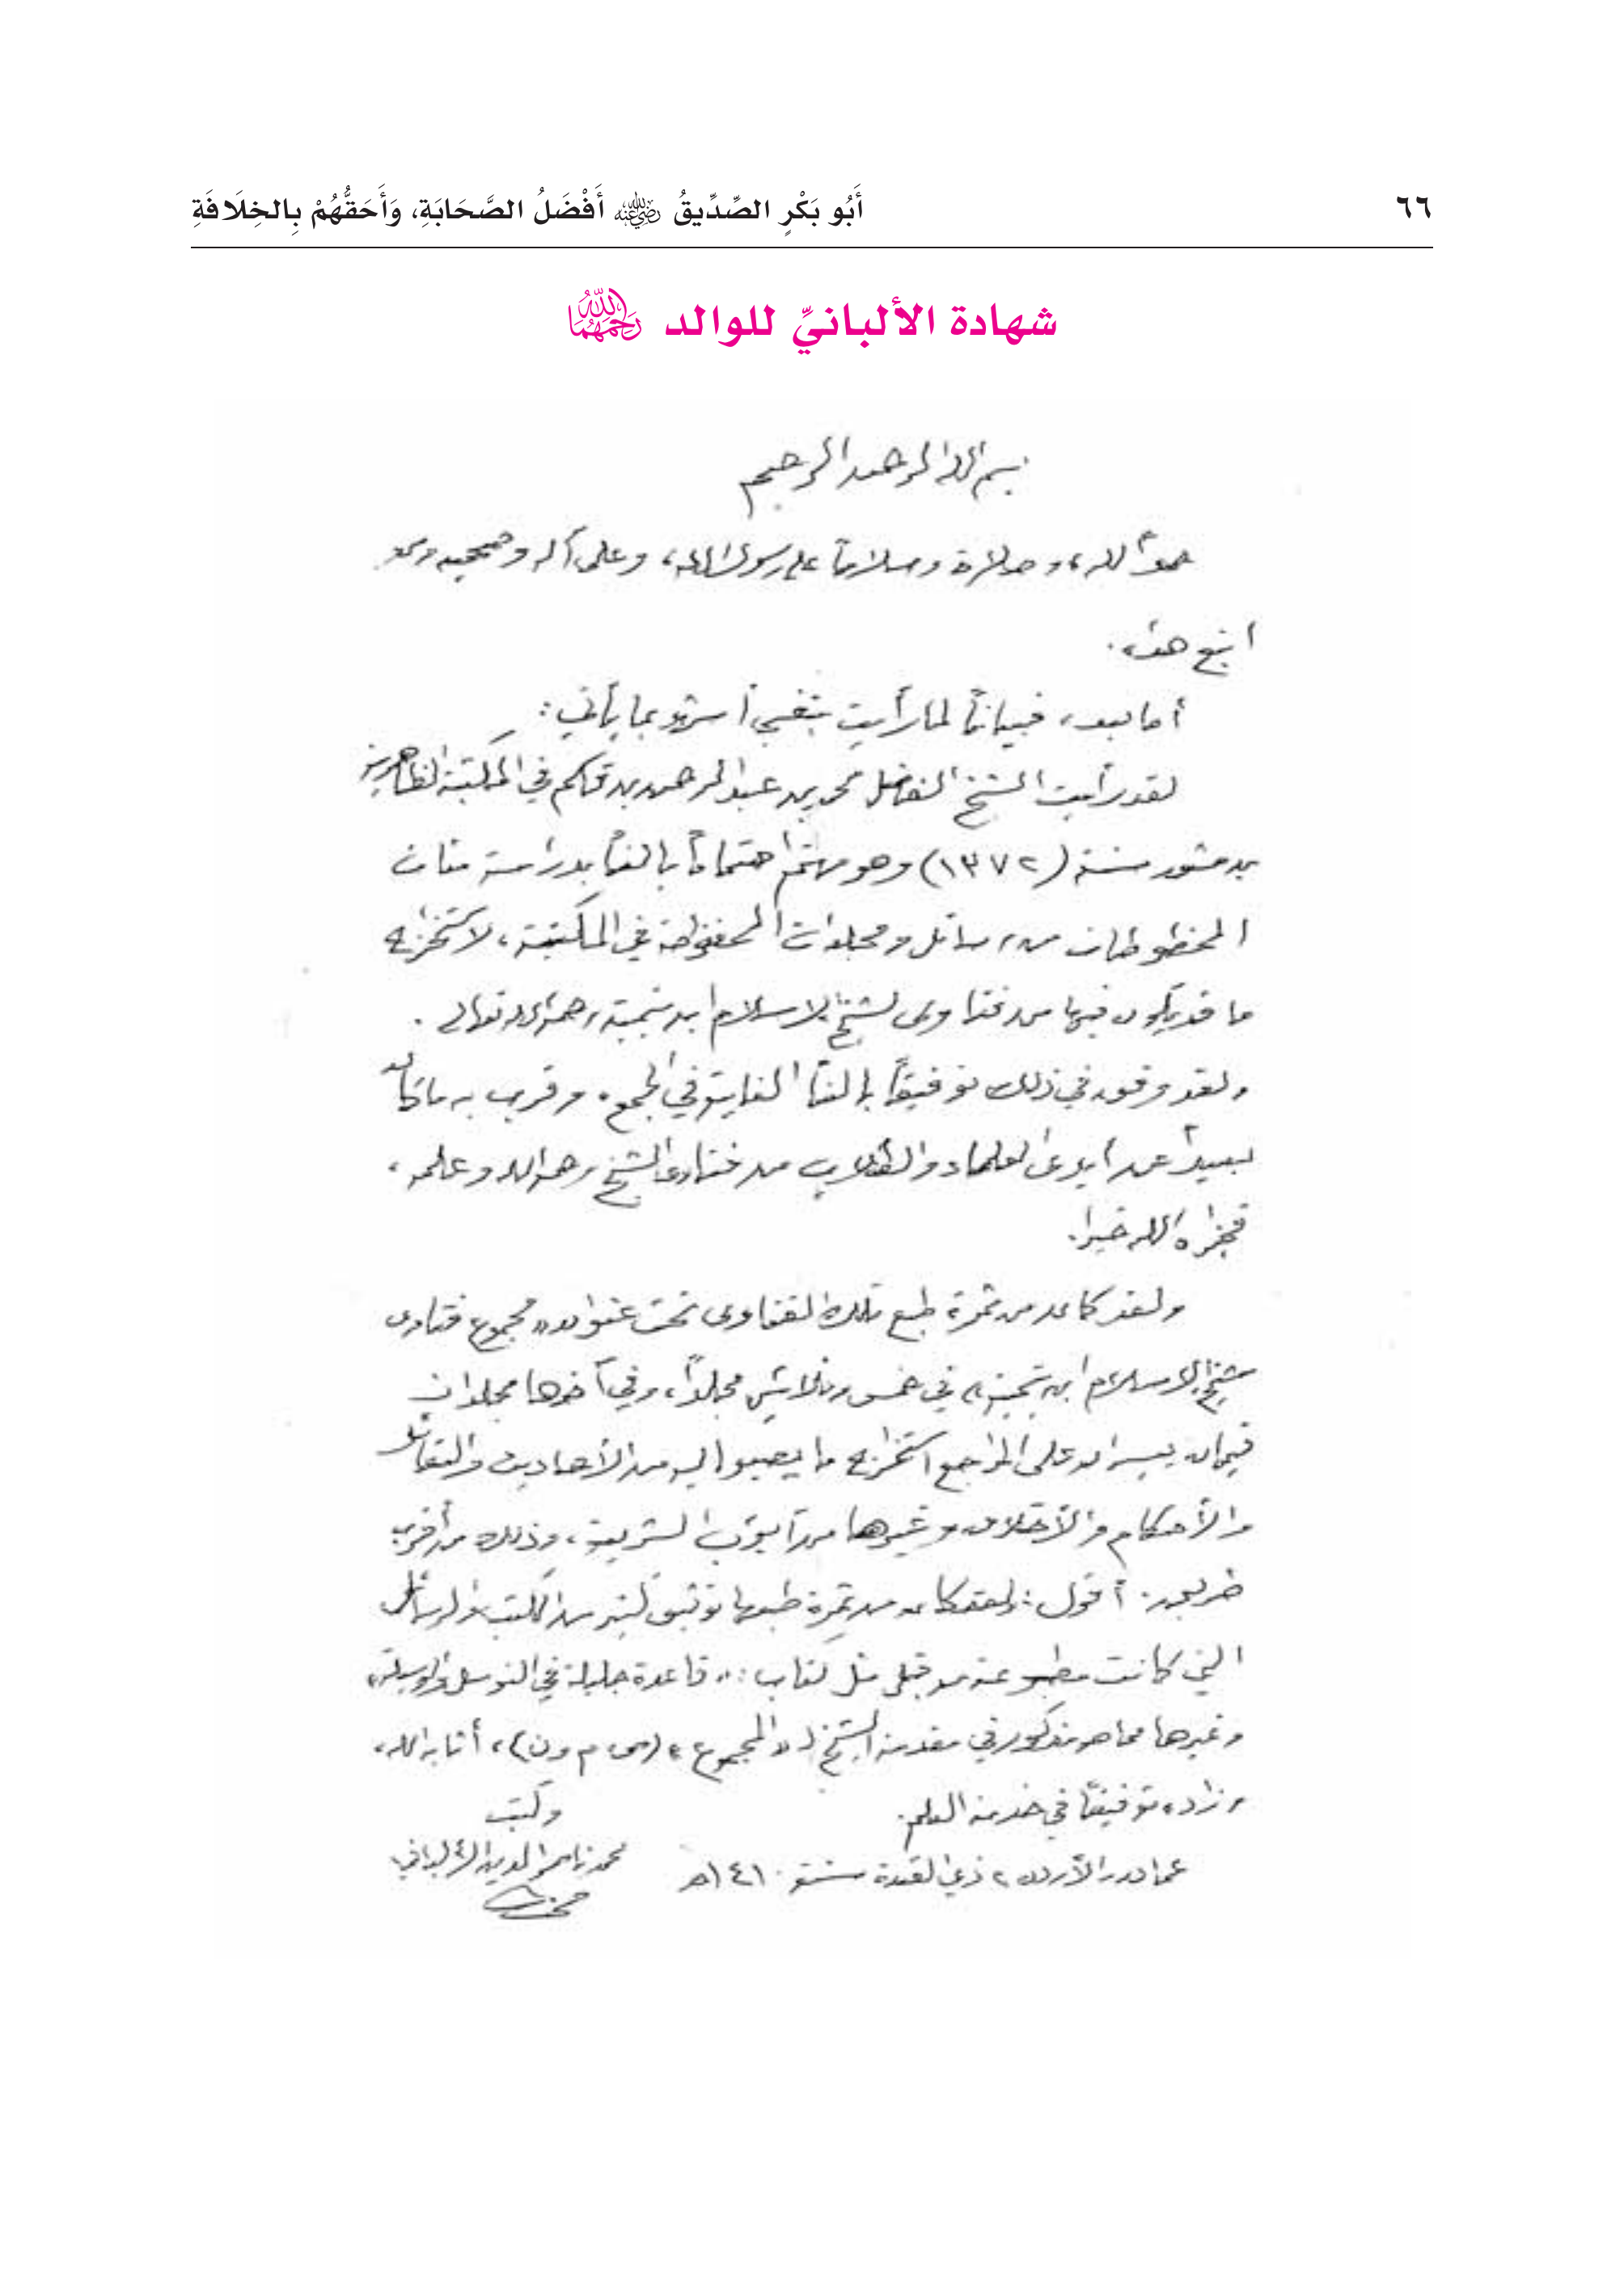 ٦٦
أَبُو بَكْرٍ الصِّدِّيقُ رضي الله عنه أَفْضَلُ الصَّحَابَةِ، وَأَحَقُّهُمْ بِالخِلَافَةِ
شهادة الألبانيِّ للوالد رحمهما الله
بسم الله الرحمن الرحيم
حمداً لله، وصلاة وسلاماً على رسول الله، وعلى آله وصحبه ومن
اتبع هداه.
أما بعد، فبياناً لما رأيت بنفسي أشهد بما يأتي:
لقد رأيت الشيخ الفاضل محمد بن عبد الرحمن بن قاسم في المكتبة الظاهرية
بدمشق سنة (١٣٧٢) وهو مهتم اهتماماً بالغاً بدراسة مئات
المخطوطات من رسائل ومجلدات المحفوظة في المكتبة، لاستخراج
ما قد يكون فيها من فتاوى لشيخ الاسلام ابن تيمية رحمه الله تعالى.
ولقد وفق في ذلك توفيقاً بالغاً الغاية في الجمع، وقرب به ما كان
بعيداً عن أيدي العلماء والطلاب من فتاوى الشيخ رحمه الله وعلمه،
فجزاه الله خيرا.
ولقد كان من ثمرة طبع تلك الفتاوى تحت عنوان «مجموع فتاوى
شيخ الاسلام ابن تيمية» في خمس وثلاثين مجلداً، وفي آخرها مجلدان
فيهما ييسران على المراجع استخراج ما يصبو اليه من الأحاديث والعقائد
والأحكام والأخلاق وغيرها من أبواب الشريعة، وذلك من أقرب
طريق. أقول: ولقد كان من ثمرة طبعها توثيق كثير من الكتب والرسائل
التي كانت مطبوعة من قبل مثل كتاب: «قاعدة جليلة في التوسل والوسيلة»
وغيرها مما هو مذكور في مقدمة الشيخ لـ «المجموع» (ص م و ن)، أثابه الله،
وزاده توفيقاً في خدمة العلم.
وكتب
عمان الأردن ٢ ذي القعدة سنة ١٤١٠هـ
محمد ناصر الدين الألباني